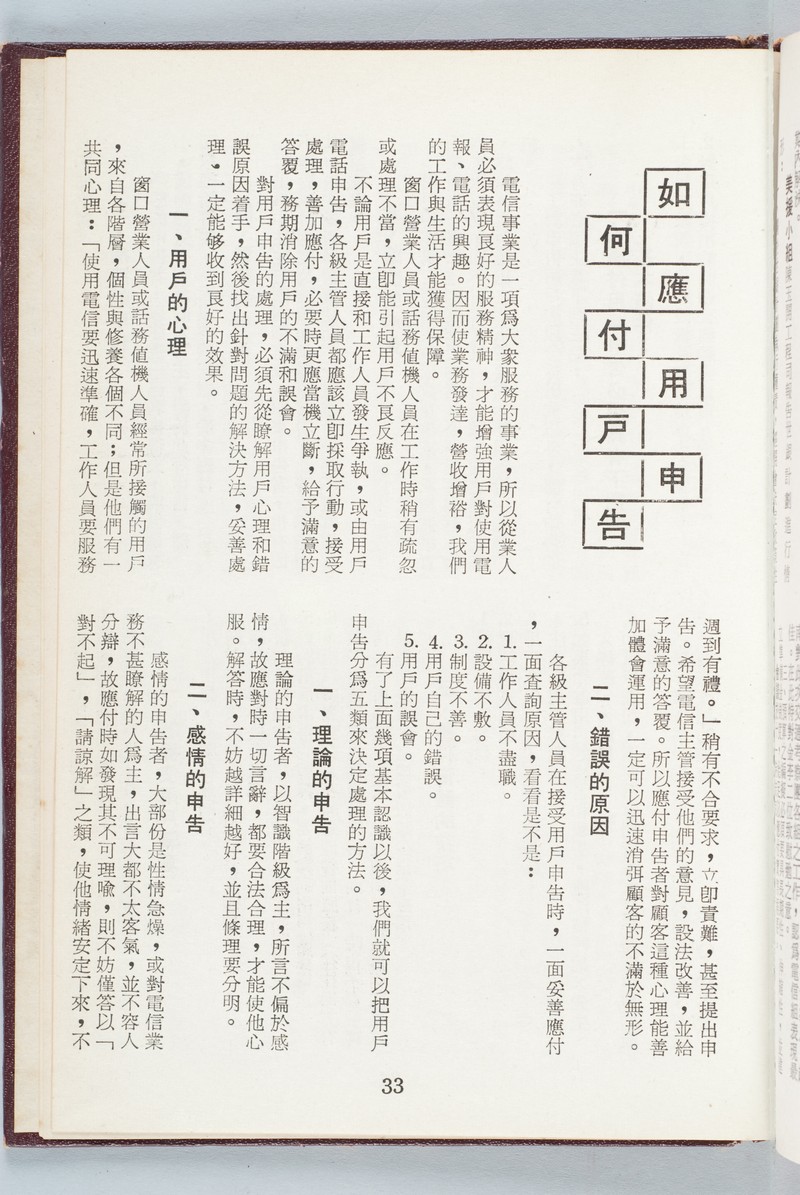 如何應付用戶申告
電信事業是一項爲大衆服務的事業，所以從業人
員必須表現良好的服務精神，才能增強用戶對使用電
報、電話的興趣。因而使業務發達，營收增裕，我們
的工作與生活才能獲得保障。
窗口營業人員或話務値機人員在工作時稍有疏忽
或處理不當，立卽能引起用戶不良反應。
不論用戶是直接和工作人員發生爭執，或由用戶
電話申告，各級主管人員都應該立卽採取行動，接受
處理，善加應付，必要時更應當機立斷，給予滿意的
答覆，務期消除用戶的不滿和誤會。
對用戶申告的處理，必須先從瞭解用戶心理和錯
誤原因着手，然後找出針對問題的解決方法，妥善處
理，一定能够收到良好的效果。
一、用戶的心理
窗口營業人員或話務値機人員經常所接觸的用戶
，來自各階層，個性與修養各個不同；但是他們有一
共同心理：「使用電信要迅速準確，工作人員要服務
週到有禮。」稍有不合要求，立卽責難，甚至提出申
告。希望電信主管接受他們的意見，設法改善，並給
予滿意的答覆。所以應付申告者對顧客這種心理能善
加體會運用，一定可以迅速消弭顧客的不滿於無形。
二、錯誤的原因
各級主管人員在接受用戶申告時，一面妥善應付
，一面查詢原因，看看是不是：
1.工作人員不盡職。
2.設備不敷。
3.制度不善。
4.用戶自己的錯誤。
5.用戶的誤會。
有了上面幾項基本認識以後，我們就可以把用戶
申告分爲五類來決定處理的方法。
一、理論的申告
理論的申告者，以智識階級爲主，所言不偏於感
情，故應對時一切言辭，都要合法合理，才能使他心
服。解答時，不妨越詳細越好，並且條理要分明。
二、感情的申告
感情的申告者，大部份是性情急燥，或對電信業
務不甚瞭解的人爲主，出言大都不太客氣，並不容人
分辯，故應付時如發現其不可理喩，則不妨僅答以「
對不起」，「請諒解」之類，使他情緒安定下來，不
33